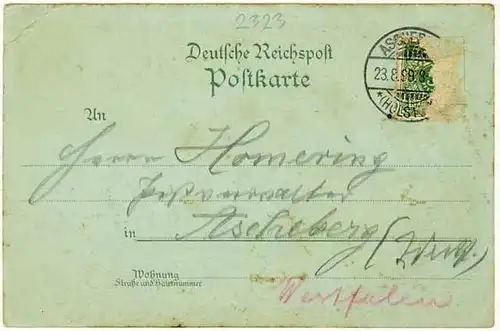 2323
Deutsche Reichspost
Postkarte
ASCHEB
23.8.99.8
*(HOLST
An
Herrn Homering
Postverwalter
in Ascheberg
Westfalen
Wohnung
Straße und Hausnummer